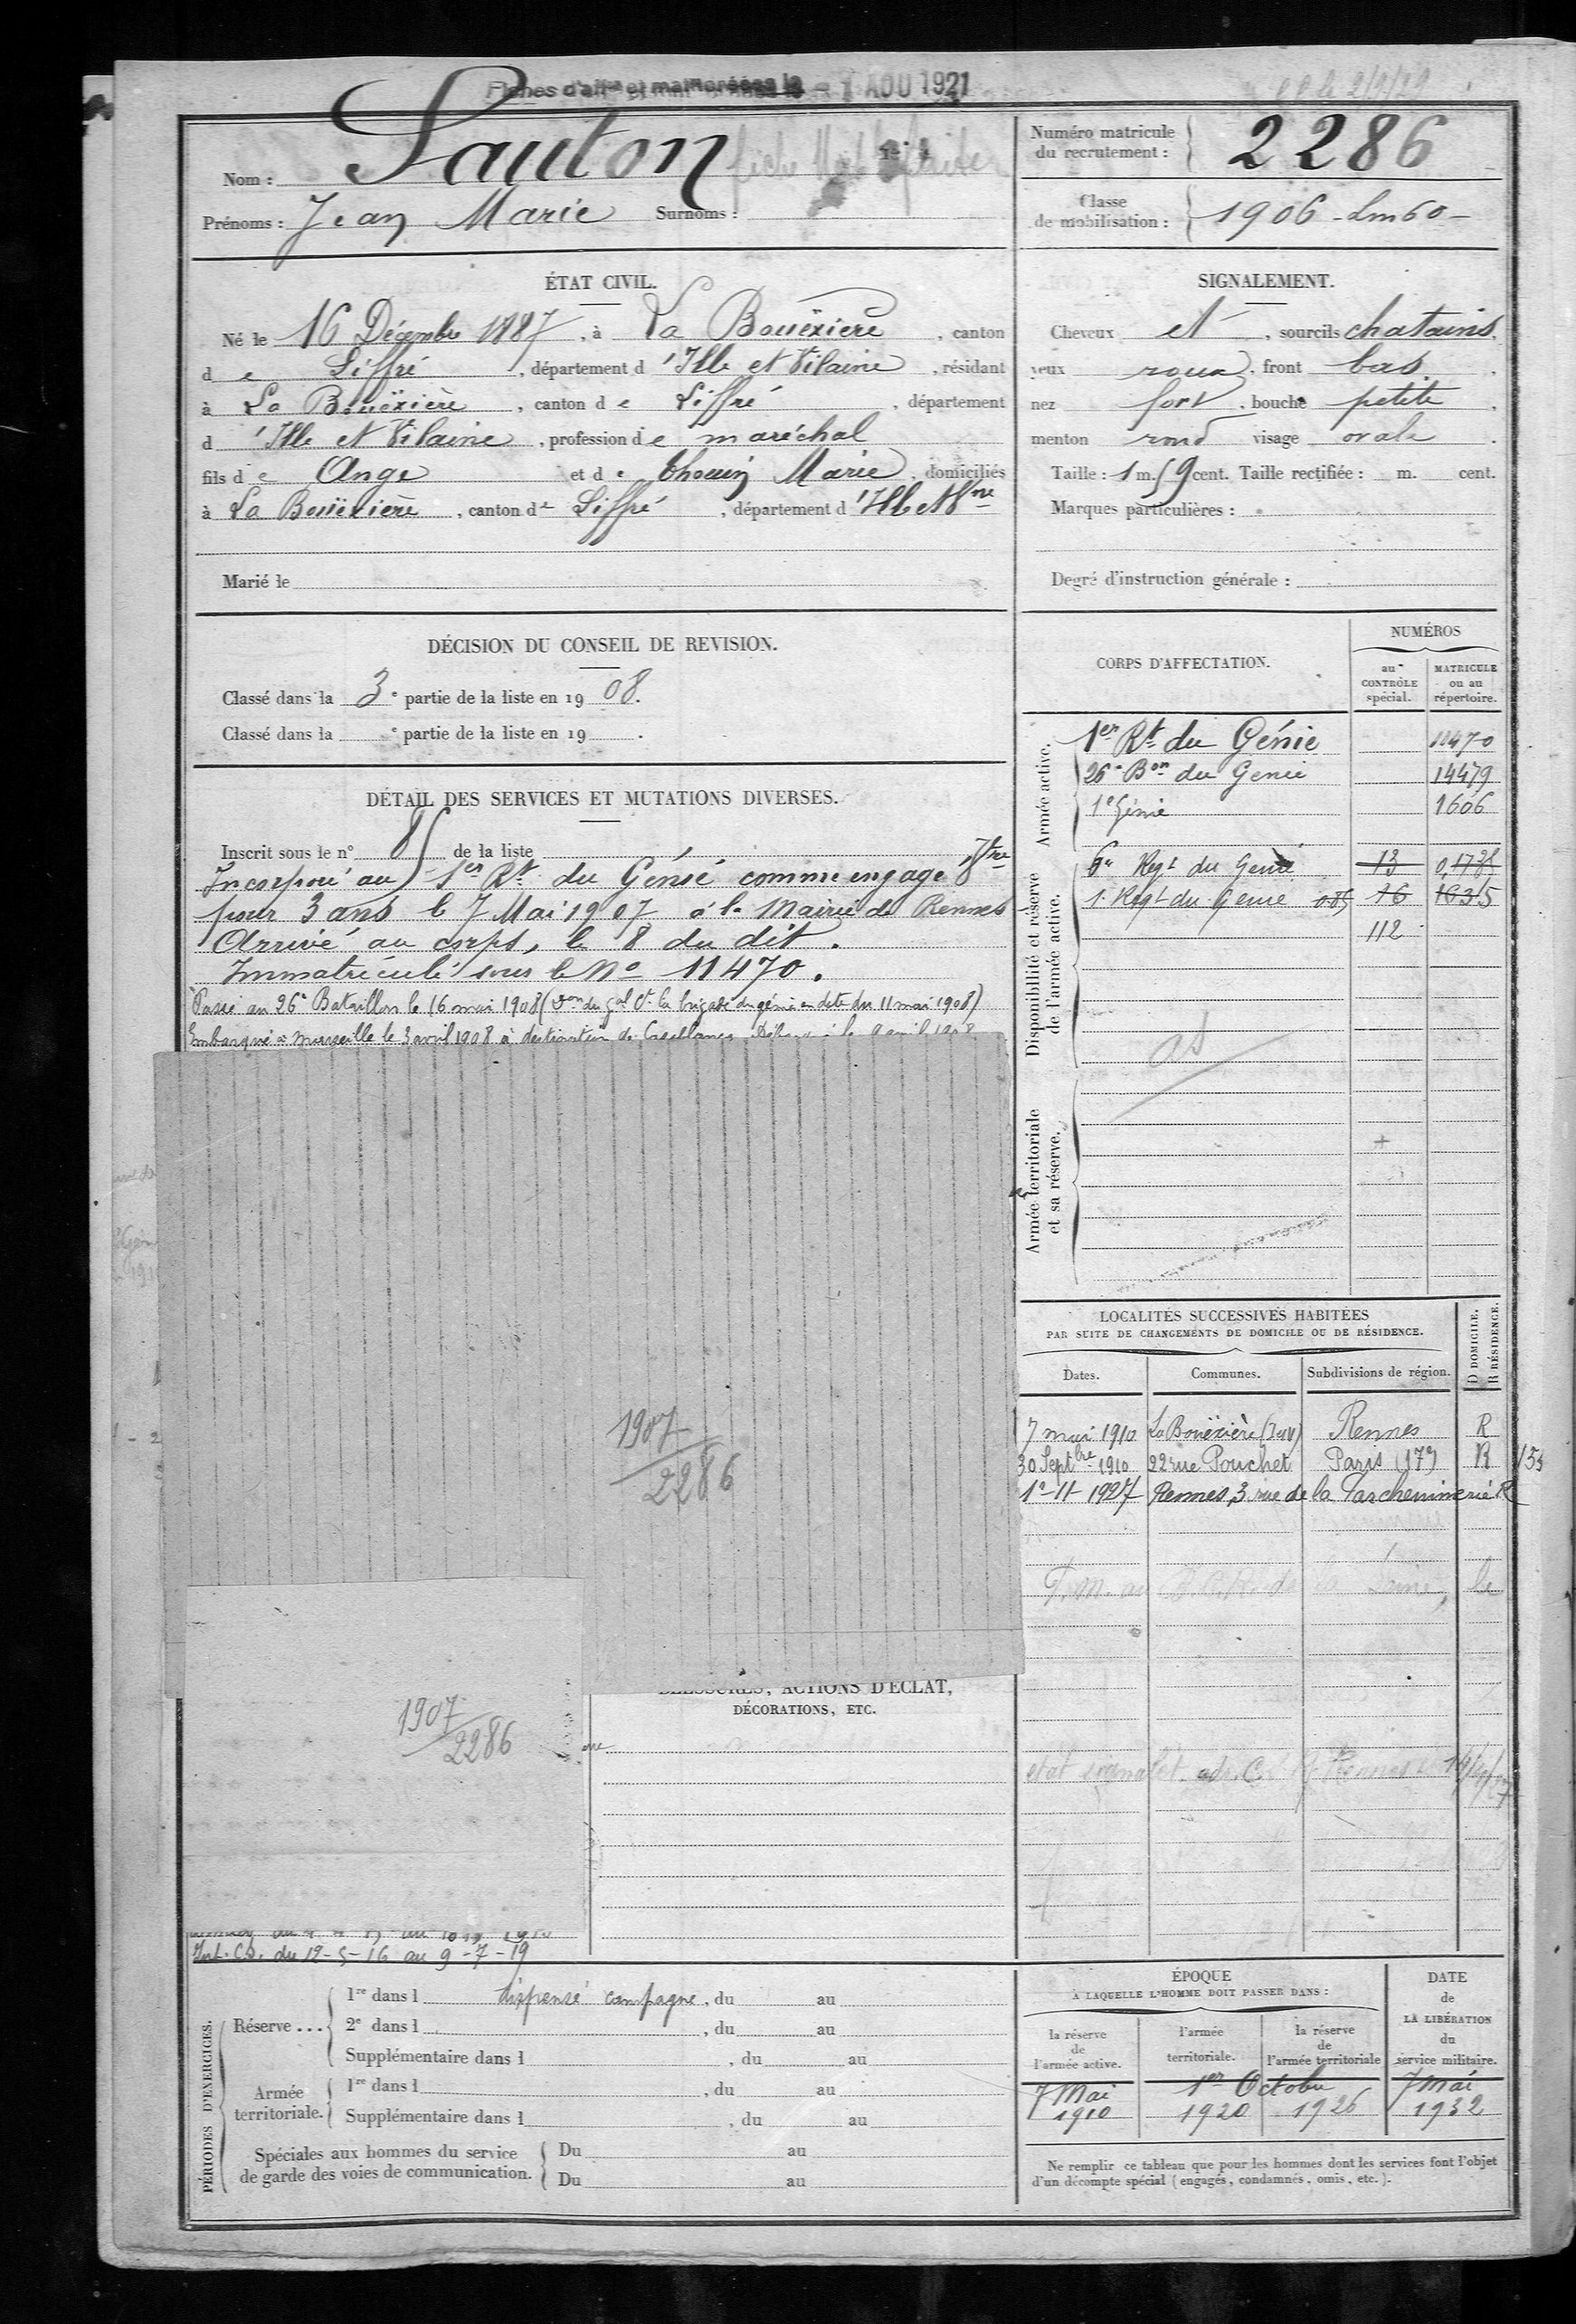 Fiches d'aff^on et mat^le créées le - 1 AOU 1921
Nom : Lauton
Prénoms : Jean Marie Surnoms :
Numéro matricule
du recrutement : 2286
Classe
de mobilisation : 1906 - Lm60 -
ÉTAT CIVIL.
Né le 16 Décembre 1887, à La Bouëxière, canton
de Liffré, département d'Ille et Vilaine, résidant
à La Bouëxière, canton de Liffré, département
d'Ille et Vilaine, profession de maréchal
fils de Ange et de Thouin Marie domiciliés
à La Bouëxière, canton de Liffré, département d'Ille et V^ne
Marié le
SIGNALEMENT.
Cheveux et, sourcils chatains,
yeux roux, front bas,
nez fort, bouche petite,
menton rond visage ovale.
Taille : 1 m. 59 cent. Taille rectifiée : m. cent.
Marques particulières :
Degré d'instruction générale :
DÉCISION DU CONSEIL DE REVISION.
Classé dans la 3e partie de la liste en 1908.
Classé dans la e partie de la liste en 19 .
DÉTAIL DES SERVICES ET MUTATIONS DIVERSES.
Inscrit sous le n° 85 de la liste
Incorporé au 1er Rt du Génie comme engagé V^tre
pour 3 ans le 7 Mai 1907 à la Mairie de Rennes
Arrivé au corps, le 8 du dit.
Immatriculé sous le No 11470.
Passé au 26e Bataillon le 16 mai 1908 (don du gal ct la brigade du génie en date du 11 mai 1908)
Embarqué à Marseille le 3 avril 1908 à destination de Casablanca le 9 avril 1908
1907
2286
1907
2286
BLESSURES, ACTIONS D'ÉCLAT,
DÉCORATIONS, ETC.
Int. CD. du 12-5-16 au 9-7-19
CORPS D'AFFECTATION.
NUMÉROS
au CONTRÔLE spécial.
MATRICULE ou au répertoire.
Armée active.
1er Rt du Génie 11470
26e Bon du Génie 14479
1e Génie 1606
Disponibilité et réserve
de l'armée active.
6e Regt du Génie 13 01735
1. Regt du Génie 085 16 1635
112
Armée territoriale
et sa réserve.
LOCALITÉS SUCCESSIVES HABITÉES
PAR SUITE DE CHANGEMENTS DE DOMICILE OU DE RÉSIDENCE.
Dates. Communes. Subdivisions de région. D DOMICILE. R RÉSIDENCE.
7 mai 1910 La Bouëxière (I et V) Rennes R
30 Septbre 1910 22 rue Pouchet Paris (17e) R 153
1e-11-1927 Rennes, 3 rue de la Parcheminerie R
PÉRIODES D'EXERCICES.
Réserve ... 1re dans l dispensé campagne, du au
2e dans l , du au
Supplémentaire dans l , du au
Armée territoriale. 1re dans l , du au
Supplémentaire dans l , du au
Spéciales aux hommes du service
de garde des voies de communication.
Du au
Du au
ÉPOQUE
À LAQUELLE L'HOMME DOIT PASSER DANS :
la réserve de l'armée active.
l'armée territoriale.
la réserve de l'armée territoriale
DATE de LA LIBÉRATION du service militaire.
7 Mai 1er Octobre 7 Mai
1910 1920 1926 1932
Ne remplir ce tableau que pour les hommes dont les services font l'objet
d'un décompte spécial (engagés, condamnés, omis, etc.).